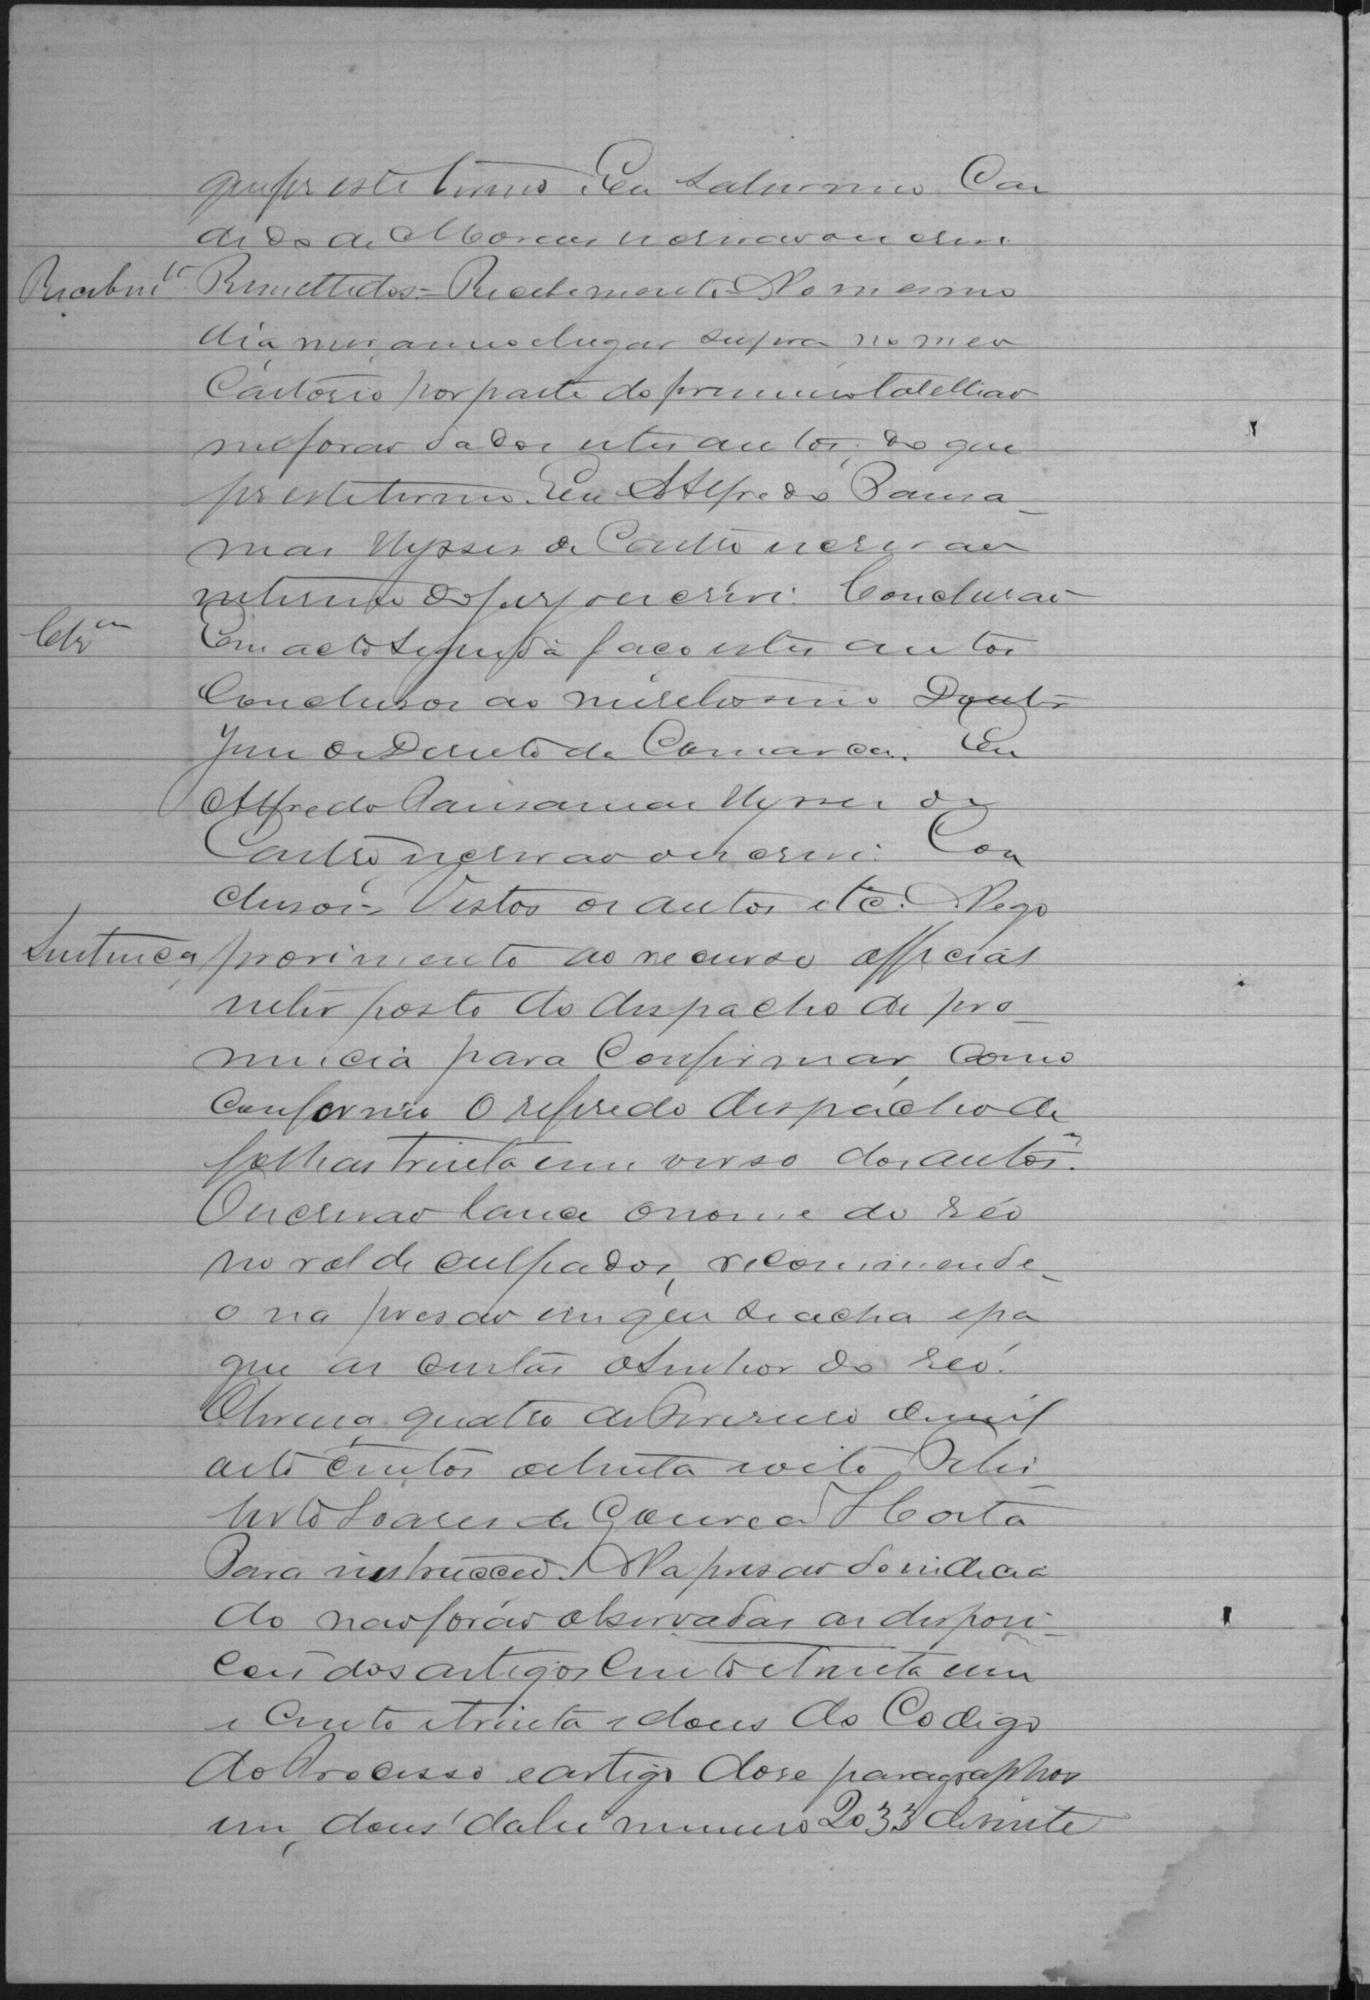 que fiz este termo Eu Saturnino Can
dido de Moraes escrivão o escrevi
Recebim.to Remettidos = Recebimento No mesmo
dia, mez, anno e lugar supra no meu
Cartorio por parte do primeiro tabellião
me forão dados estes autos, do que
fiz este termo. Eu Alfredo Pausa_
nias Ulysses de Castro escrivão
interino do jury o escrevi. Conclusão
Cls.am Em acto seguido faço estes autos
Conclusos ao meretissimo Doutor
Juiz de Direito da Comarca. Eu
Alfredo Pausanias Ulysses de
Castro, escrivão o escrevi. Con
clusos = Vistos os autos etc. Nego
Sentença provimento ao recurso official
interposto do despacho de pro_
nuncia para Confirmar, como
confirmo o referedo despacho de
folhas trinta e um verso dos autos.
O escrivão lance o nome do réo
no rol de culpados, recommende_
o na prisão em que se acha e pa
gue as custas o senhor do réo.
quatro de Fevereiro de mil
oito centos oitenta e oito
Soares de Gouvea Horta
Para instrucção. Na prisão do indicia
do não forão observadas as disposi_
ções dos artigos Cento e trinta e um
e Cento e trinta e dous do Codigo
do Processo e artigo dose paragraphos
um, dous da lei numero 2033 de vinte